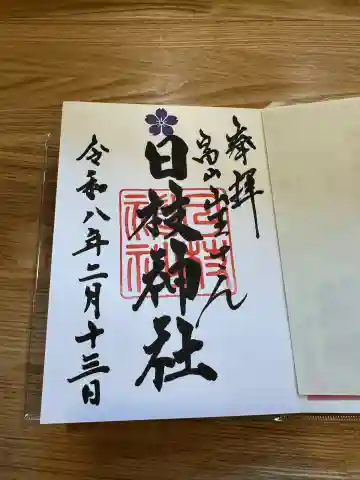 奉拝
富山山王さん
日枝神社
令和八年二月十三日
日枝神社